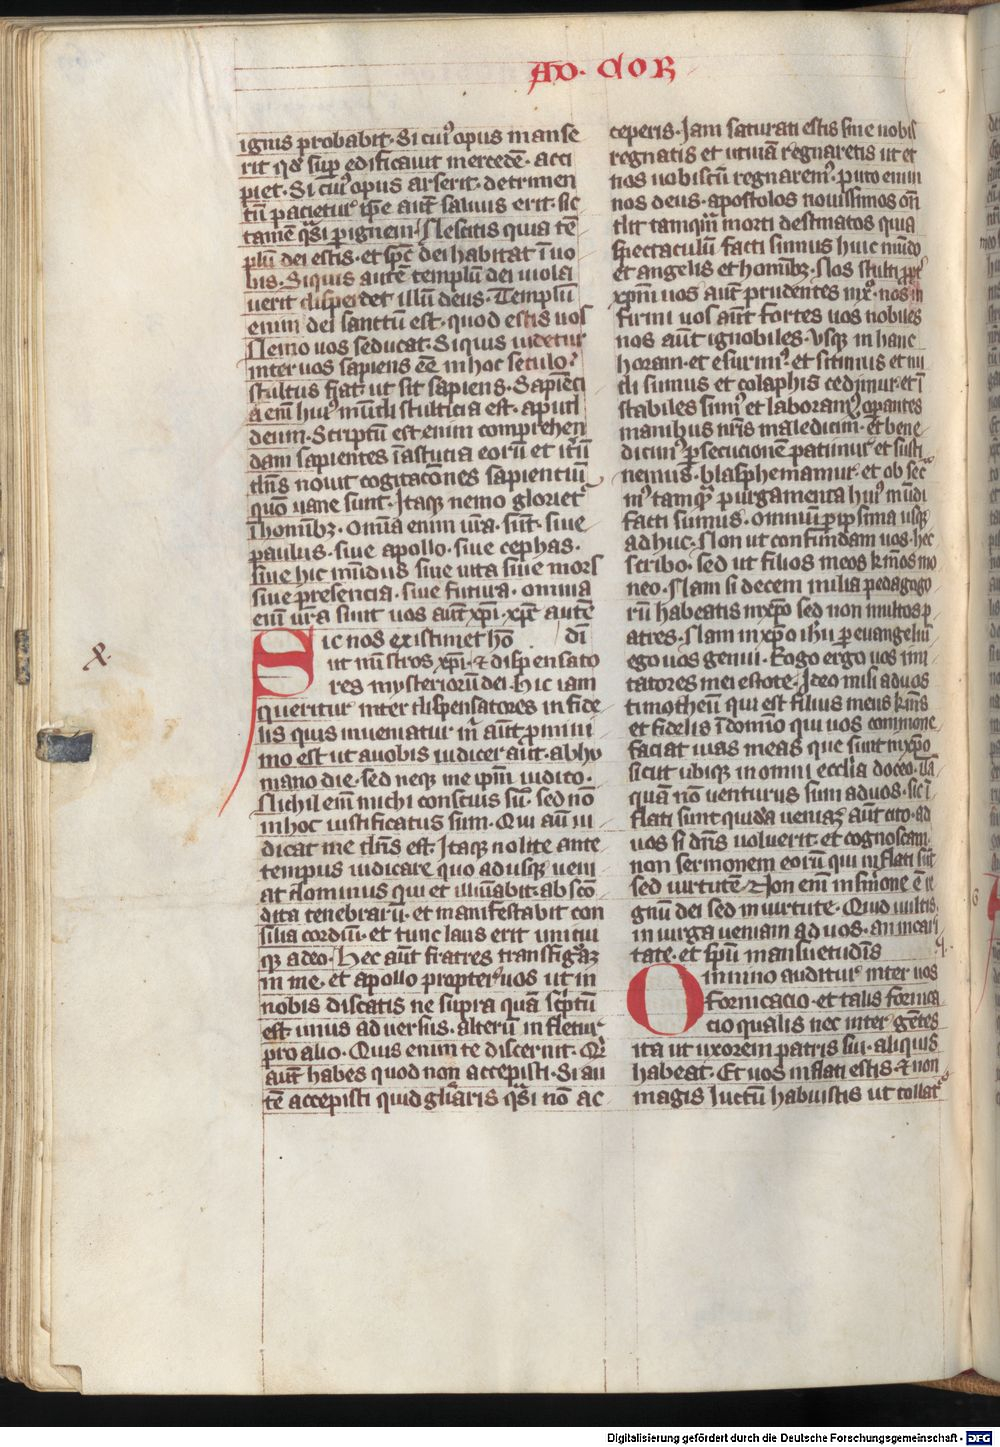 AD. COR
ignis probabit. Si cuiꝰ opus manse
rit qd̛ suꝑ edificauit mercedē. acci
piet. Si cuiꝰ opus arserit. detrimen
tū pacietur ip̄e aut̄ saluus erit. sic
tamē q̄si ꝑ ignem. Nescitis quia tē
plū dei estis. et sp̄c dei habitat ī uo
bis. Siquis autē templū dei uiola
uerit disperdet illū deus. Templū
enim dei sanctū est. quod estis uos
Nemo uos seducat. Siquis uidetur
inter uos sapiens eē in hoc seculo.
stultus fiat ut sit sapiens. Sapiēci
a eni᷑ huiꝰ mūdi stulticia est. apud
deum. Scriptū est enim comprehen
dam sapientes ī astucia eorū et itꝰū
dn̄s nouit cogitacōnes sapientiū
quō uane sunt. Itaqꝫ nemo glorietᷣ
ī homibꝫ. Om̄ia enim ur̄a. sūt. siue
paulus. siue apollo. siue cephas.
siue hic mūdus siue uita siue mors
siue presencia. siue futura. omnia
eni᷑ ur̄a sunt uos aut̄ xp̄i. xp̄c autē
Sic nos existimet hō di᷑
ut mi᷑stros xp̄i. ⁊ dispensato
res mysteriorū dei. Hic iam
queritur inter dispensatores ut fide
lis quis inueniatur m̄ aut̄ ꝓ mini
mo est ut auobis iudicer aut̄. ab hu
mano die. sed neqꝫ me ip̄m iudico.
Nichil eni᷑ michi conscius sū. sed nō
in hoc iustificatus sum. Qui aūt iu
dicat me dn̄s est. Itaqꝫ nolite ante
tempus iudicare quo adusqꝫ ueni
at dominus qui et illuīabit ab scō
dita tenebrarū. et manifestabit con
silia cordiū. et tunc laus erit unicui
qꝫ adeo. Hec aut̄ fratres transfig᷑aꝫ
in me. et apollo propterꝰuos ut in
nobis discatis ne supra quā sc̄ptū
est. unus aduersus. alterū infleturᷣ
pro alio. Quis enim te discernit. Qꝰ
aut̄ habes quod non accepisti. Si au
tē accepisti quid gl̄iaris q̄si nō ac
ceperis. Iam saturati estis sine nobis
regnatis et utinā regnaretis ut et
nos uobiscū regnaremꝰ. puto enim
nos deus. apostolos nouissimos on̄
dit tamquā morti destinatos quia
spectaculū facti sumus huic mūdo
et angelis et homibꝫ. Nos stulti ꝓpt̄
xp̄m uos aut̄ prudentes in xº. nos in
firmi uos aut̄ fortes uos nobiles
nos aut̄ ignobiles. Vsqꝫ in hanc
horam. et esurimꝰ. et sitimus et nu
di sumus et colaphis cedimur. et ī
stabiles sumꝰ et laboramꝰ. opantes
manibus nr̄is maledicim᷑. et bene
dicimꝰ ꝑsecucionē patimur et susti
nemus. blasphemamur. et ob sec᷑
mꝰ tamqꝫ purgamenta huiꝰ mūdi
facti sumus. omniū ꝑipsima usqꝫ
ad huc. Non ut confundam uos. hec
scribo. sed ut filios meos km̄os mo
neo. Nam si decem milia pedagogo
rū habeatis in xp̄o sed non multos p
atres. Nam in xp̄o ih̄u ꝑ euangeliū
ego uos genui. Rogo ergo uos imi
tatores mei estote. Ideo misi ad uos
timotheū qui est filius meus km̄s
et fidelis ī domīo qui uos commone
faciat uias meas que sunt in xp̄o
sicut ubiqꝫ in omni ecclīa doceo. tā
quā nō uenturus sum ad uos. sic ī
flati sunt quidā ueniaꝫ aut̄ cito. ad
uos si dn̄s uoluerit. et cognoscam.
non sermonem eorū qui inflati sūt
sed uirtutē. Non eni᷑ in sm̄one ē re
gnū dei sed in uirtute. Quid uultis.
in uirga ueniam ad uos. an in cari
tate. et spū mansuetudīs
Omnino auditur inter uos
fornicacio. et talis fornica
cio qualis nec inter gētes
ita ut uxorem patris sui. aliquis
habeat. Et uos inflati estis. ⁊ non
magis luctū habuistis ut tollatᷣ
Digitalisierung gefördert durch die Deutsche Forschungsgemeinschaft - DFG